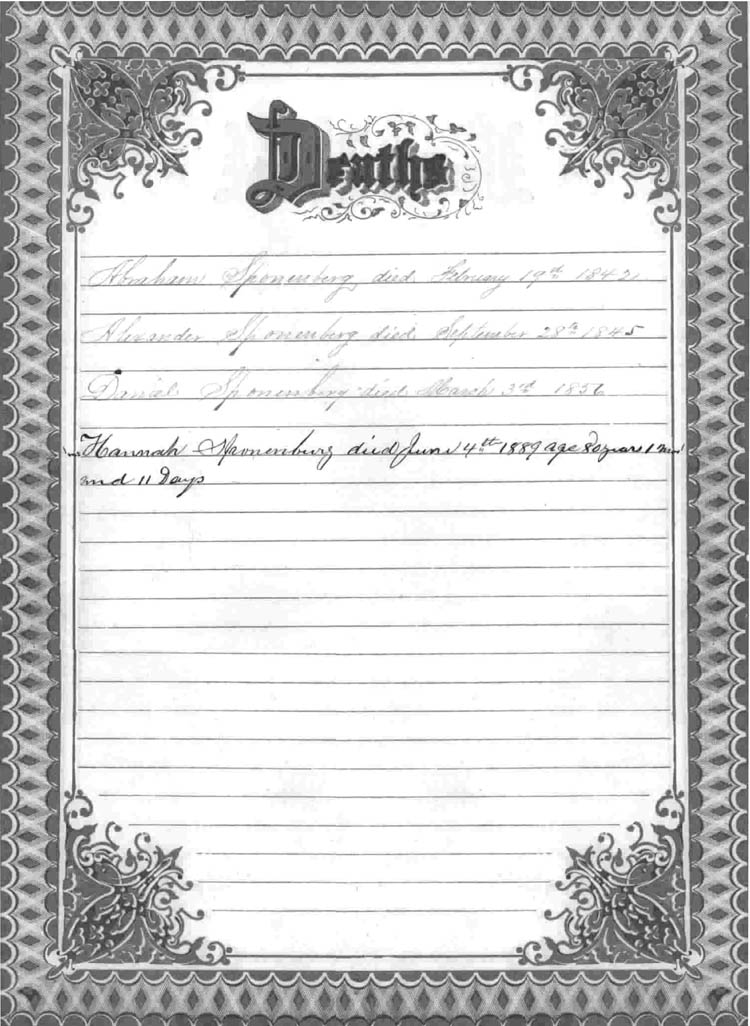 Deaths
Abraham Sponenberg died February 19th 1842
Alexander Sponenberg died September 28th 1845
Daniel Sponenburg died March 3rd 1856
Hannah Sponenburg died June 4th 1889 age 80 years 1 mo
and 11 Days